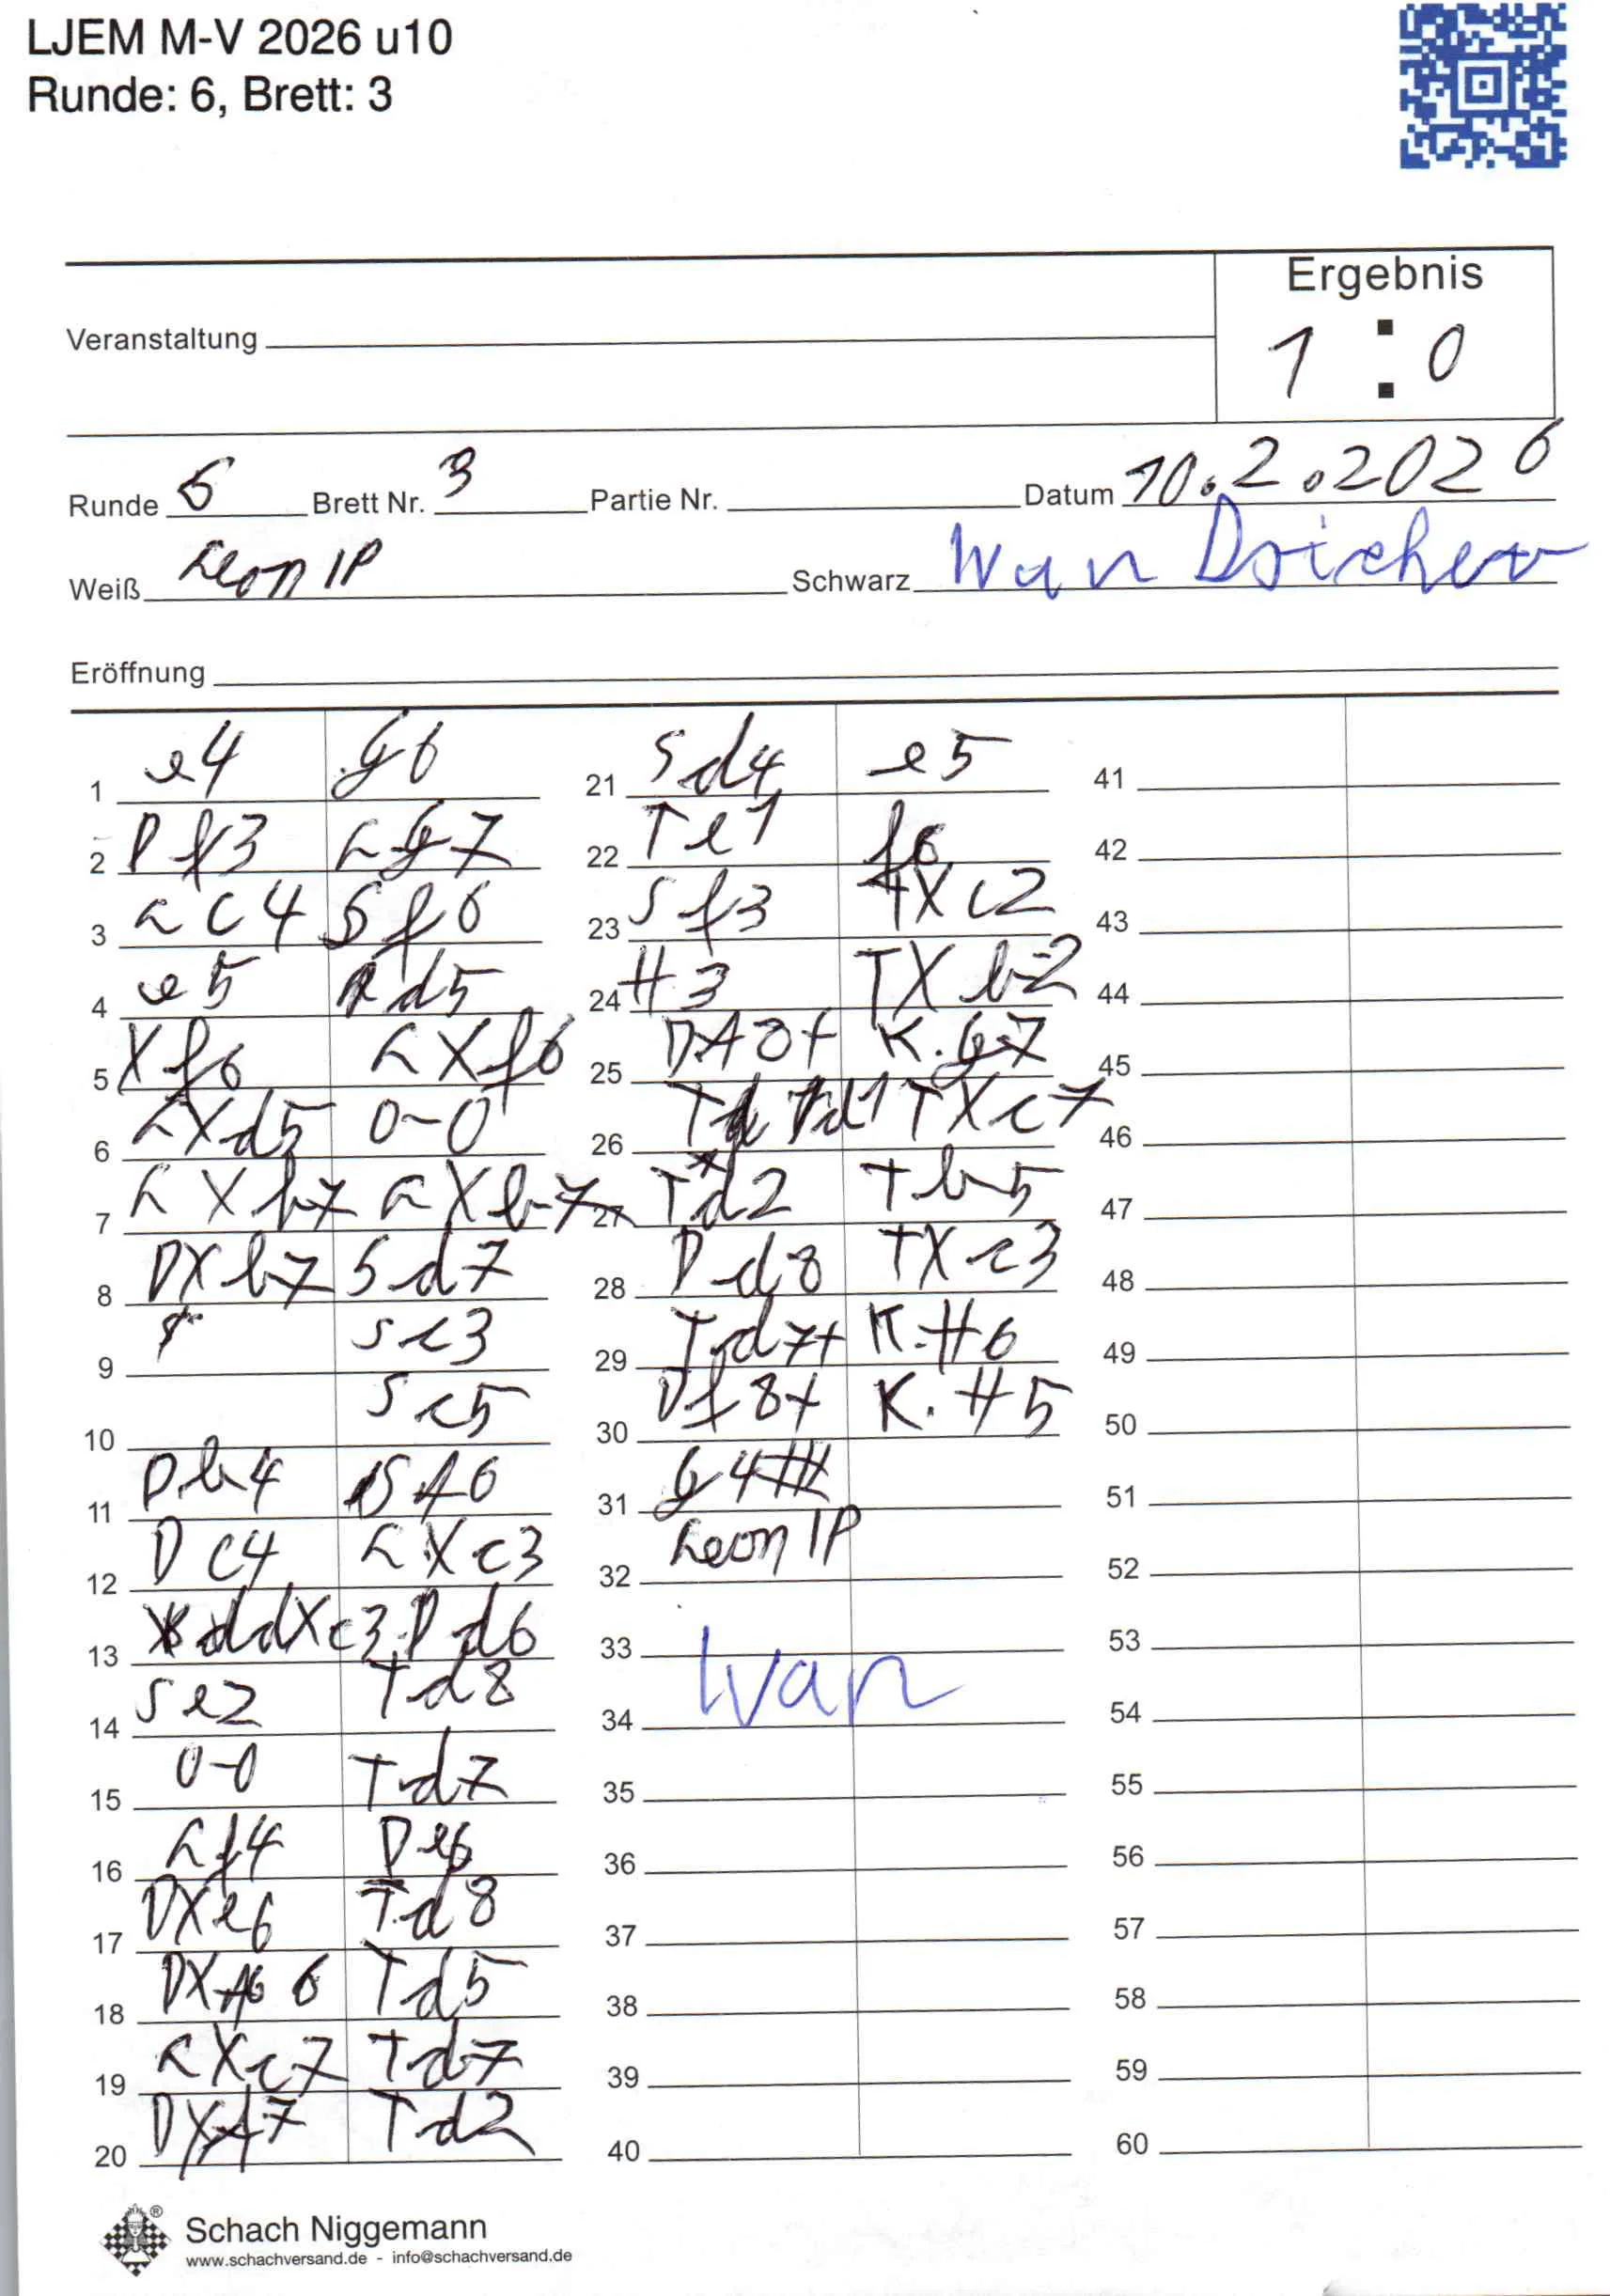 LJEM M-V 2026 u10
Runde: 6, Brett: 3
Ergebnis
1 : 0
Veranstaltung
Runde 6 Brett Nr. 3 Partie Nr. Datum 10.2.2026
Weiß Leon IP Schwarz
Eröffnung
1 e4 g6
2 Df3 Lg7
3 Lc4 Sf6
4 e5 d5
5 Xf6 LXf6
6 LXd5 0-0
7 LXb7 LXb7
8 DXb7 Sd7
9 Sc3
10 Sc5
11 Db4 SA6
12 Dc4 LXc3
13 dXc3 Dd6
14 Se2 Td8
15 0-0 Td7
16 Lf4 De6
17 DXe6 Td8
18 DXA6 Td5
19 LXc7 Td7
20 DXA7 Td2
21 Sd4 e5
22 Te1 f6
23 Sf3 TXc2
24 H3 TXb2
25 DA8+ K.g7
26 Td1 TXc7
27 Td2 Tb5
28 Dd8 TXc3
29 Td7+ K.H6
30 Df8+ K.H5
31 g4#
32 Leon IP
33
34 Ivan
35
36
37
38
39
40
41
42
43
44
45
46
47
48
49
50
51
52
53
54
55
56
57
58
59
60
Schach Niggemann
www.schachversand.de - info@schachversand.de